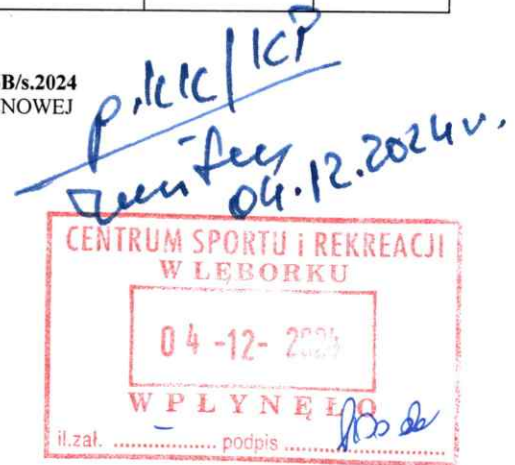 B/s.2024
NOWEJ
p. KK/KP
04.12.2024r.
CENTRUM SPORTU i REKREACJI
W LĘBORKU
04 -12- 2024
WPŁYNĘŁO
il.zał. – podpis